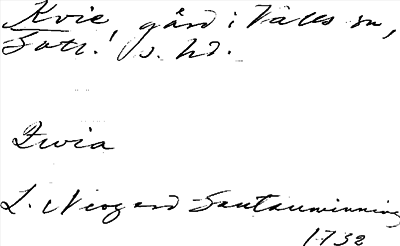 Kvie, gård i Välls sn,
Gotl. s. hd.
Qvia
L. Neogard Gautauminning
1732